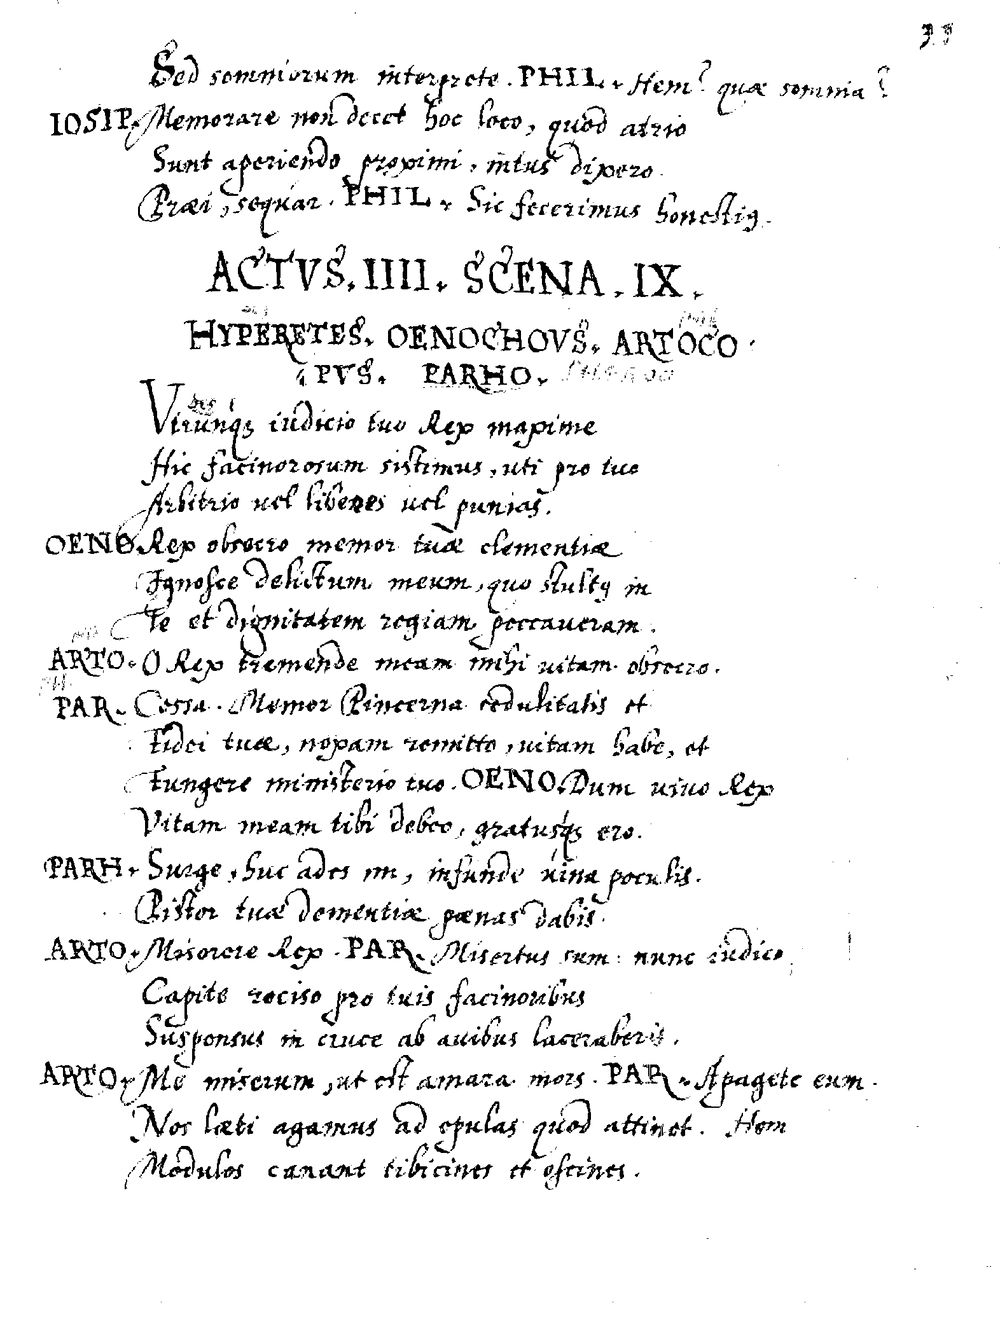 33
Sed somniorum interprete. PHIL. Hem? quæ somnia?
IOSIP. Memorare non decet hoc loco, quod atrio
Sunt aperiendo proximi, intus dixero.
Præi, sequar. PHIL. Sic fecerimus honestiꝰ.
ACTVS. IIII. SCENA. IX.
HYPERETES. OENOCHOVS. ARTOCO
PVS. PARHO.
Virunqꝫ iudicio tuo Rex maxime
Hic facinorosum sistimus, uti pro tuo
Arbitrio uel liberes uel punias.
OENO. Rex obsecro memor tuæ clementiæ
Ignosce delictum meum, quo stultꝰ in
Te et dignitatem regiam peccaueram.
ARTO. O Rex tremende meam mihi uitam obsecro.
PAR. Cessa. Memor Pincerna sedulitatis et
Fidei tuæ, noxam remitto, uitam habe, et
Fungere ministerio tuo. OENO. Dum uiuo Rex
Vitam meam tibi debeo, gratusqꝫ ero.
PARH. Surge, huc ades nn, infunde uina poculis.
Pistor tuæ dementiæ pœnas dabis.
ARTO. Miserere Rex. PAR. Misertus sum: nunc iudico
Capite reciso pro tuis facinoribus
Suspensus in cruce ab auibus laceraberis.
ARTO. Me miserum, ut est amara mors. PAR. Apagete eum.
Nos læti agamus ad epulas quod attinet. Hem
Modulos canant tibicines et oscines.